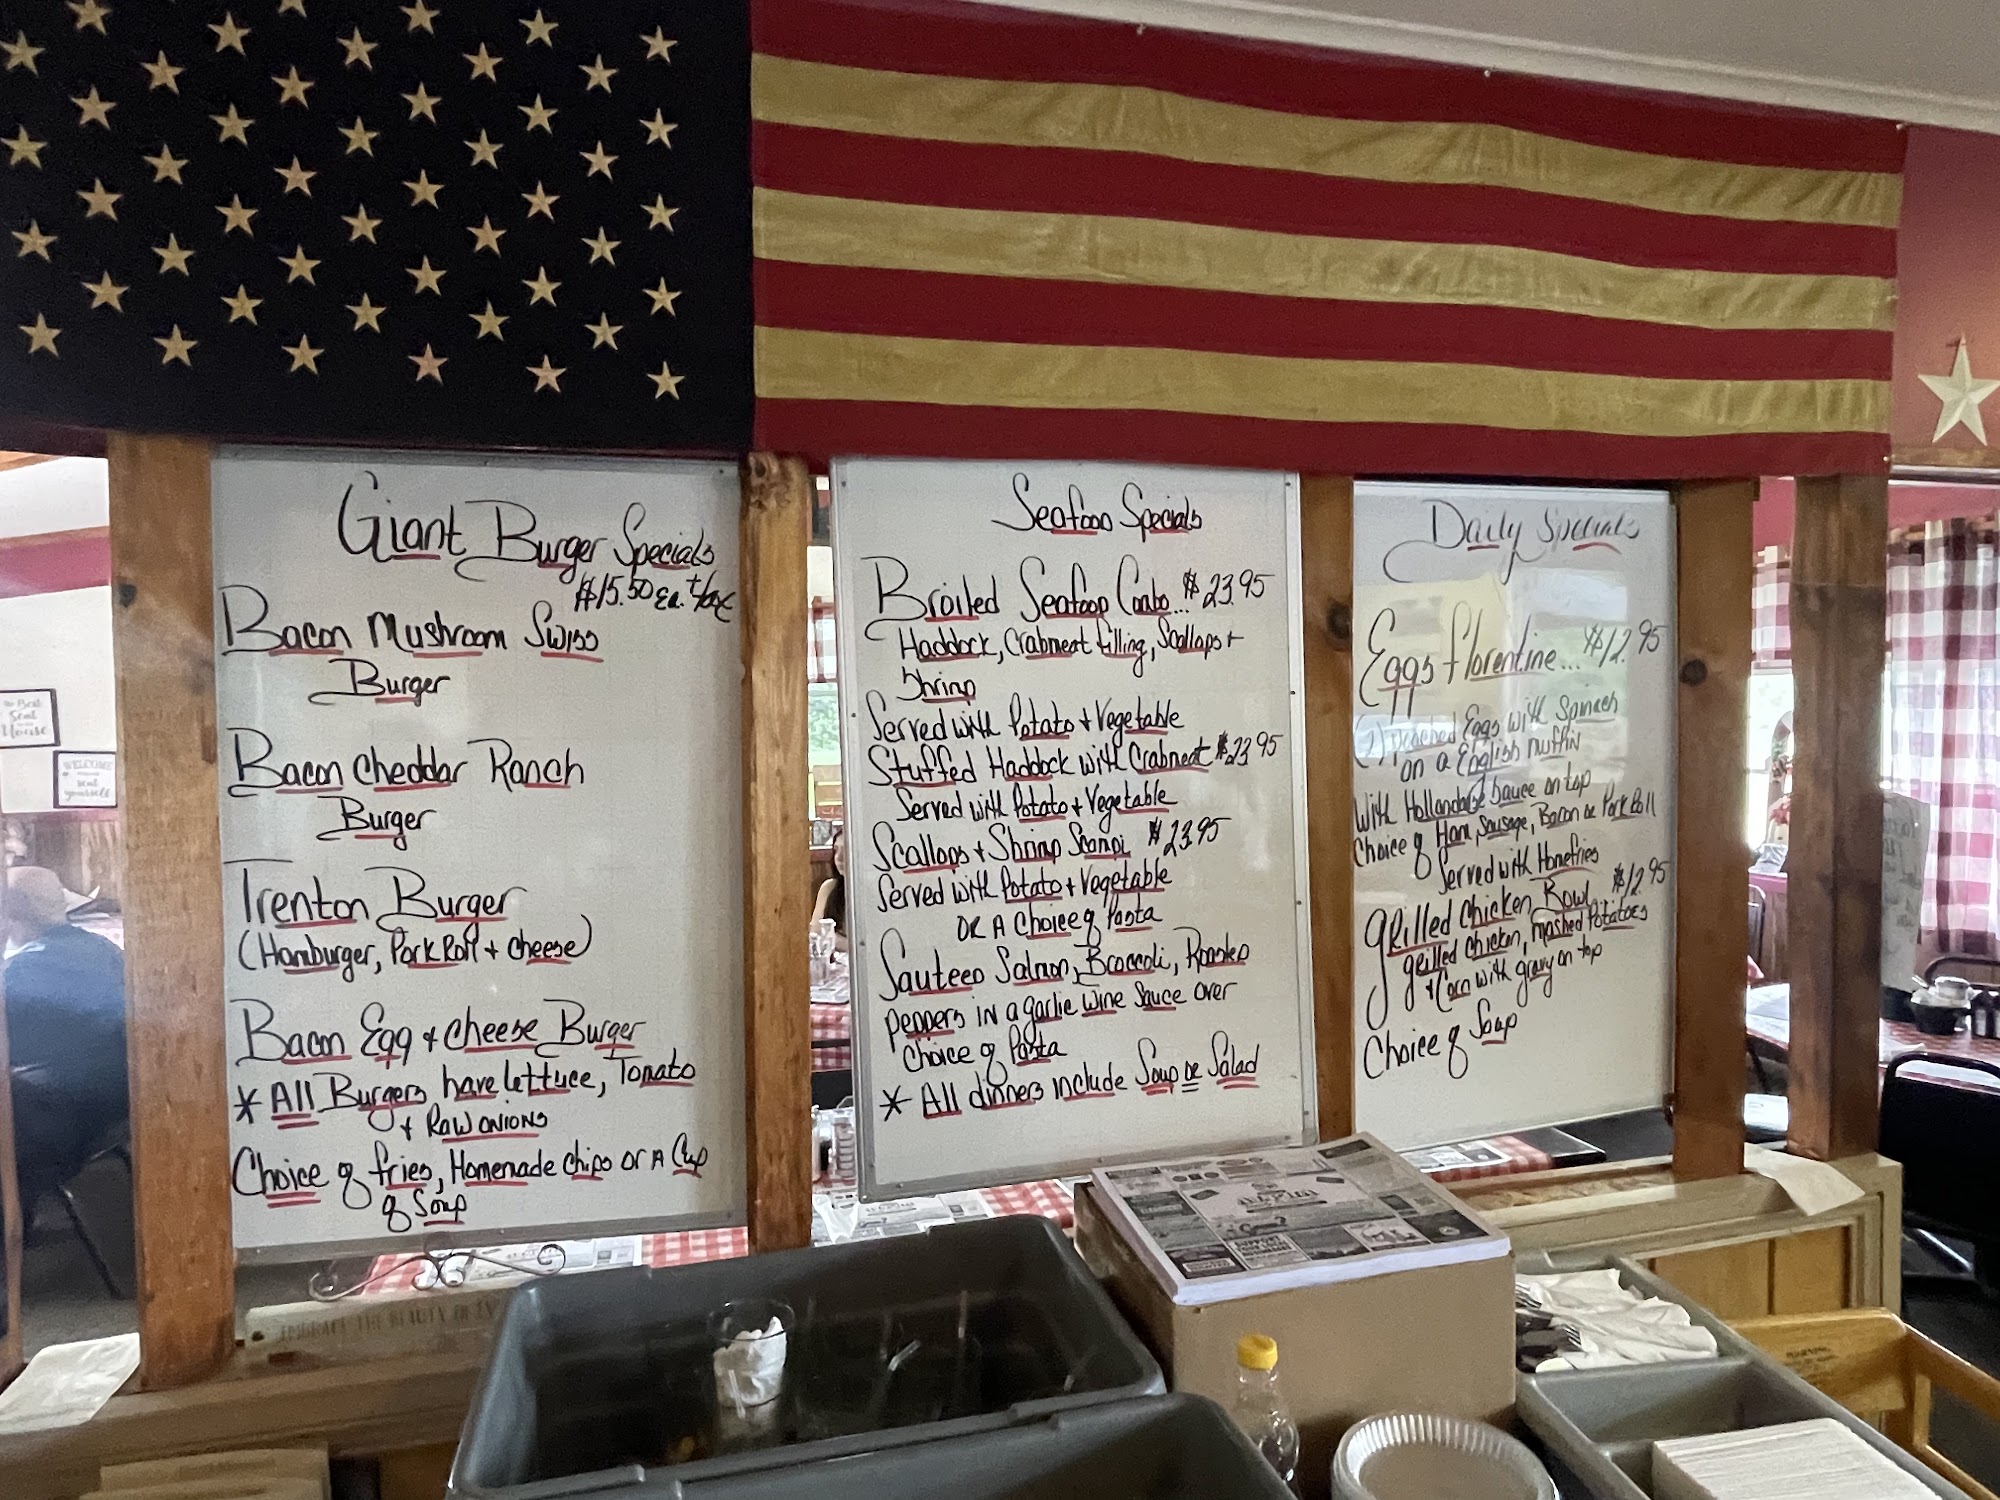 Giant Burger Specials
$15.50 ea. + tax
Bacon Mushroom Swiss
Burger
Bacon Cheddar Ranch
Burger
Trenton Burger
(Hamburger, Pork Roll + Cheese)
Bacon Egg + Cheese Burger
* All Burgers have lettuce, Tomato
+ Raw onions
Choice of fries, Homemade chips or a Cup
of Soup
Seafood Specials
Broiled Seafood Combo... $23.95
Haddock, Crabmeat filling, Scallops +
Shrimp
Served with Potato + Vegetable
Stuffed Haddock with Crabmeat $23.95
Served with Potato + Vegetable
Scallops + Shrimp Scampi $23.95
Served with Potato + Vegetable
OR A Choice of Pasta
Sauteed Salmon, Broccoli, Roasted
peppers in a garlic wine sauce over
choice of Pasta
* All dinners include Soup or Salad
Daily Specials
Eggs florentine... $12.95
(2) poached Eggs with Spinach
on a English muffin
With Hollandaise Sauce on top
Choice of Ham, Sausage, Bacon or Pork Roll
Served with Homefries
grilled chicken Bowl $12.95
grilled chicken, mashed Potatoes
+ Corn with gravy on top
Choice of Soup
the Best
Seat
House
WELCOME
seat
yourself
EMBRACE THE BEAUTY OF